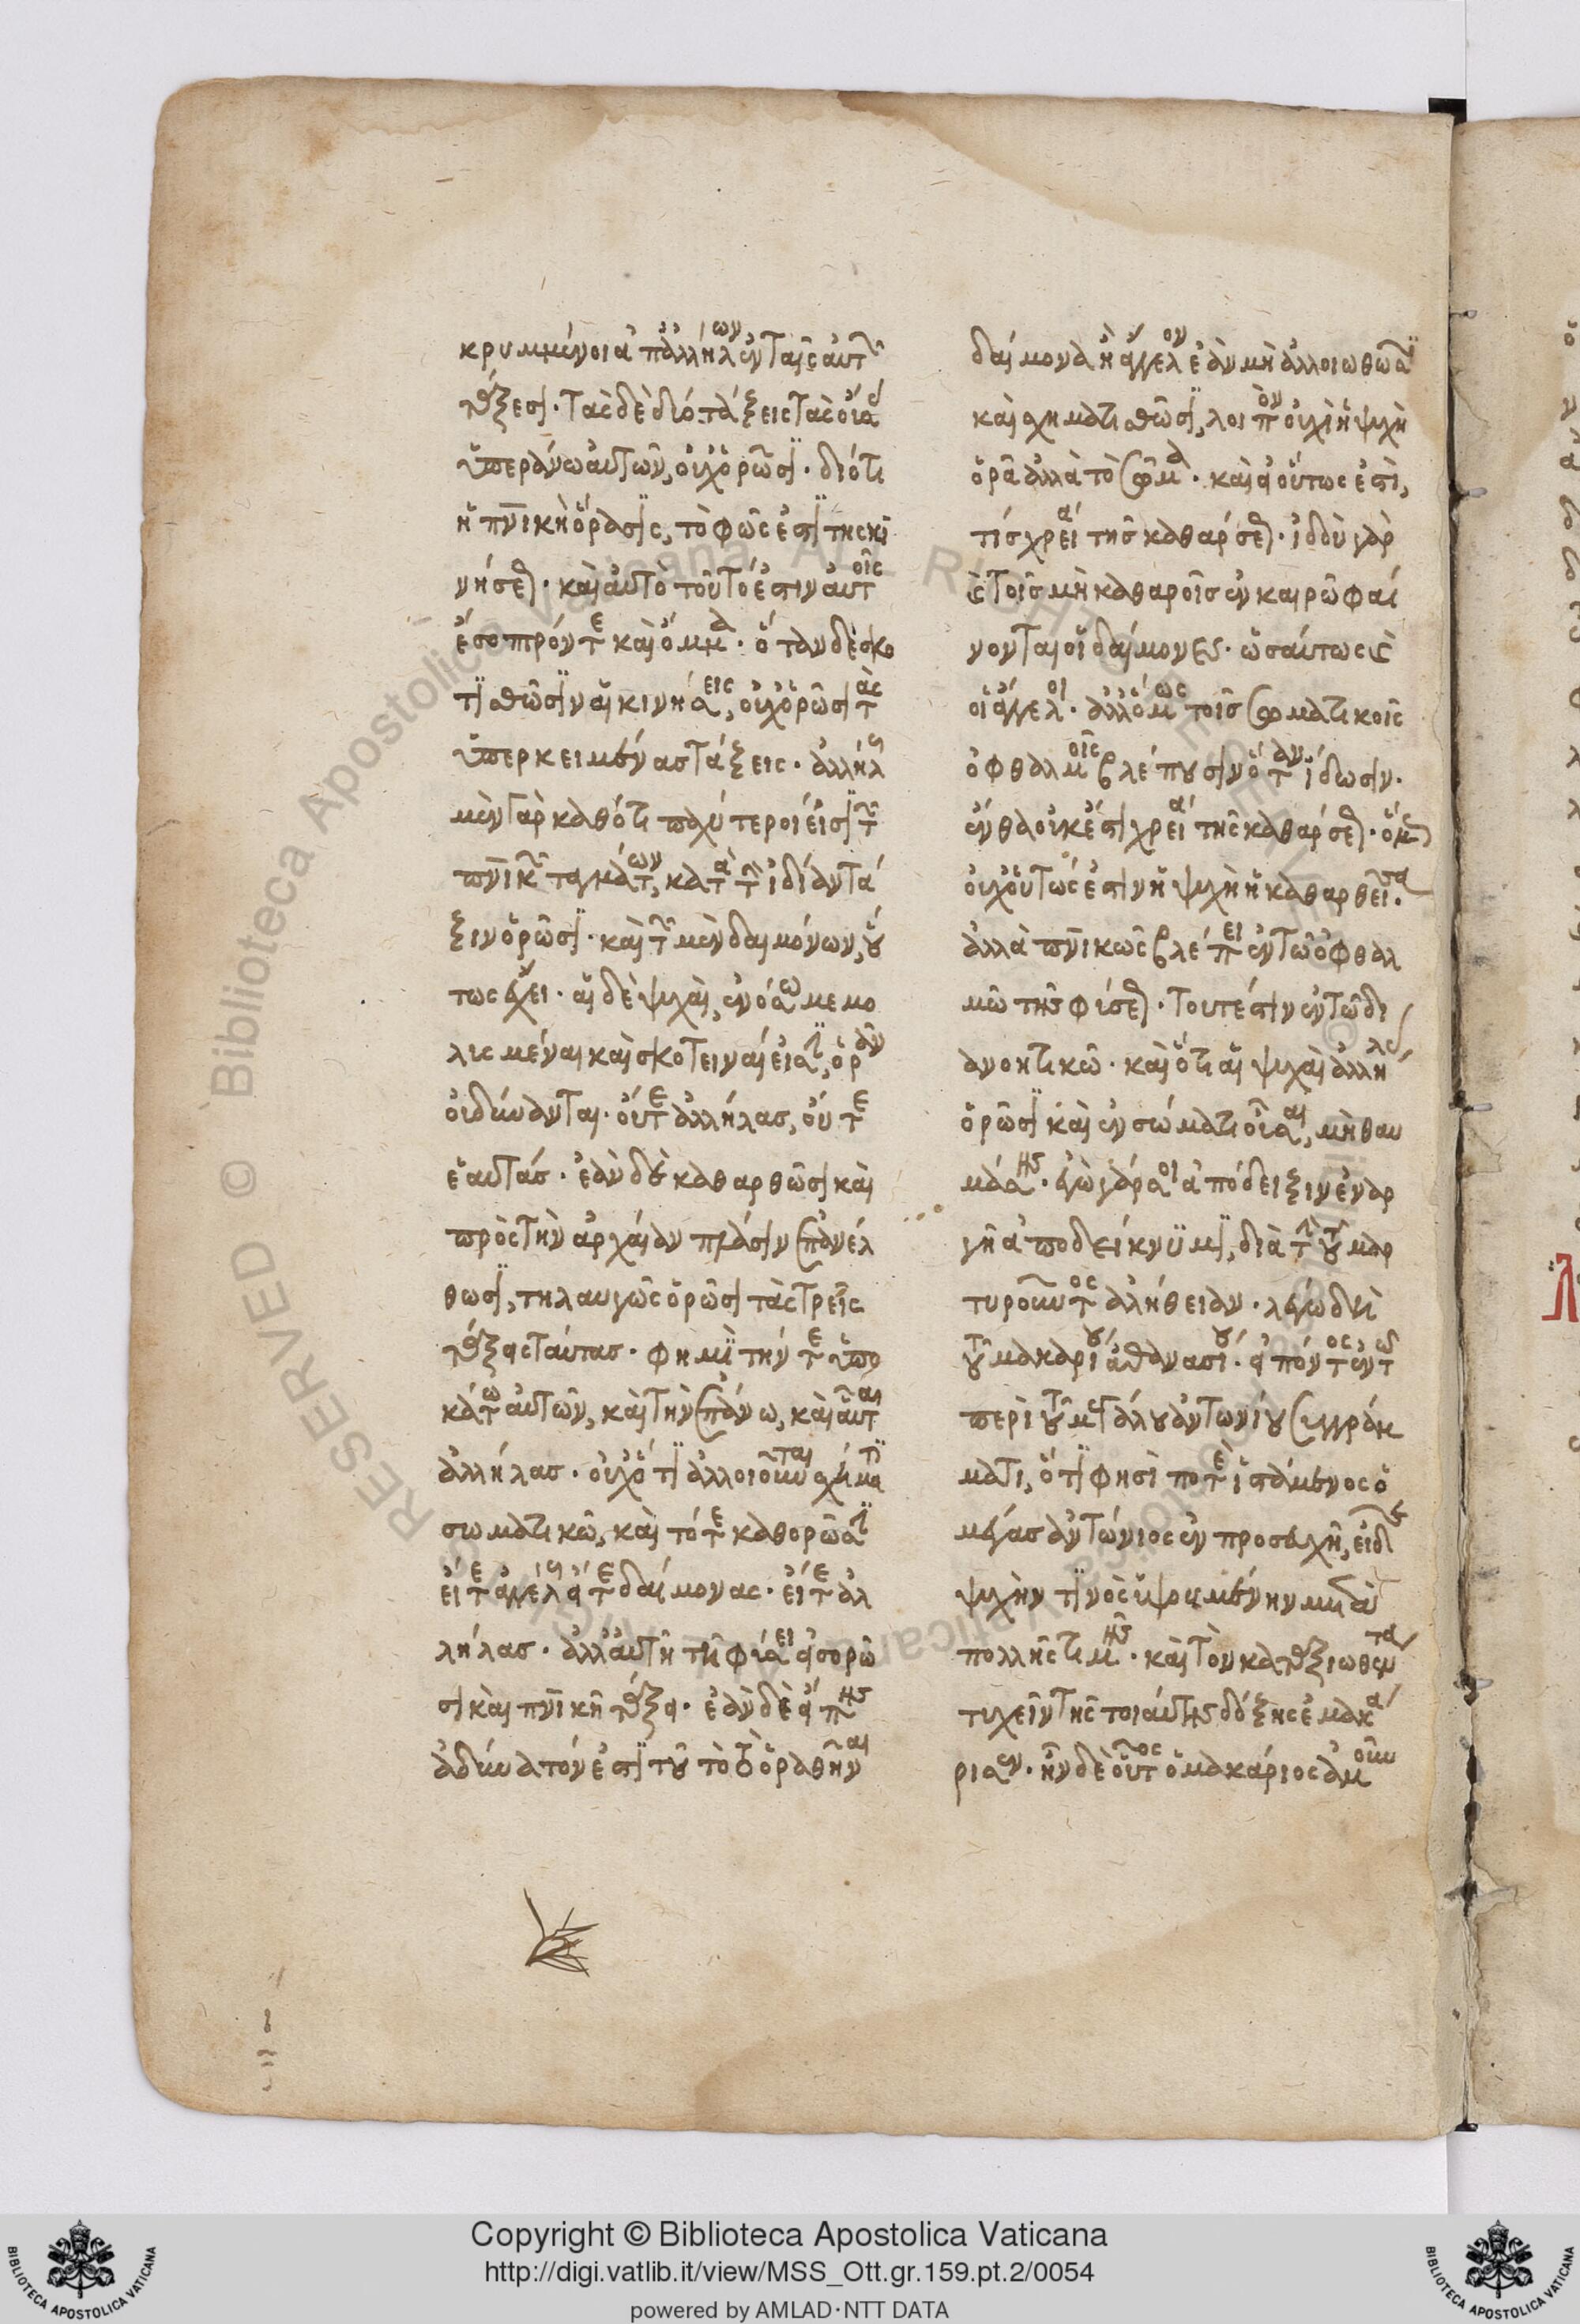 κρυμμένοι ἀπ' ἀλλήλων ἐν ταῖς αὐτῶν
τάξεσι. τὰς δὲ δύο τάξεις τὰς οὔσας
ὑπεράνω αὐτῶν, οὐχ ὁρῶσι. διότι
ἡ πνικὴ ὅρασις, τὸ φῶς ἐστι τῆς κι
νήσεως. καὶ αὐτὸ τοῦτό ἐστιν αὐτοῖς
ἔσοπρόν τε καὶ ὄμμα. ὅταν δὲ σκο
τισθῶσιν αἱ κινήσεις, οὐχ ὁρῶσι τὰς
ὑπερκειμένας τάξεις. ἀλλήλους
μὲν γὰρ καθότι παχύτεροί εἰσι τῶν
πνικῶν ταγμάτων, κατὰ τὴν ἰδίαν τά
ξιν ὁρῶσι. καὶ τῶν μὲν δαιμόνων, οὕ
τως ἔχει. αἱ δὲ ψυχαὶ, ἐν ὅσω μεμο
λυσμέναι καὶ σκοτειναί εἰσιν, ὁρᾶν
οὐ δύνανται. οὔτε ἀλλήλας, οὔτε
ἑαυτάς. ἐὰν δὲ καθαρθῶσι καὶ
πρὸς τὴν ἀρχαίαν πλάσιν ἐπανέλ
θωσι, τηλαυγῶς ὁρῶσι τὰς τρεῖς
τάξεις ταύτας. φημὶ τήν τε ὑπο
κάτω αὐτῶν, καὶ τὴν ἐπάνω, καὶ αὗται
ἀλλήλας. οὐχ ὅτι ἀλλοιοῦνται σχήματι
σωματικῶ, καὶ τότε καθορῶσιν
εἴτε ἀγγέλους εἴτε δαίμονας. εἴτε ἀλ
λήλας. ἀλλ' αὐτῆ τῆ φύσει εἰσορῶ
σι καὶ πνικῆ τάξει. ἐὰν δὲ εἴπης
ἀδύνατόν ἐστι τοῦτο τοῦ ὁραθῆναι
δαίμονα ἢ ἄγγελον ἐὰν μὴ ἀλλοιωθῶσι
καὶ σχηματισθῶσι, λοιπὸν οὐχὶ ἡ ψυχὴ
ὁρᾶ ἀλλὰ τὸ σῶμα. καὶ εἰ οὕτως ἐστὶ,
τίς χρεία τῆς καθάρσεως. ἰδοὺ γὰρ
καὶ τοῖς μὴ καθαροῖς ἐν καιρῶ φαί
νονται οἱ δαίμονες. ὡσαύτως καὶ
οἱ ἄγγελοι. ἀλλ' ὅμως τοῖς σωματικοῖς
ὀφθαλμοῖς βλέπουσιν ὅταν ἴδωσιν.
ἔνθα οὐκ ἔστι χρεία τῆς καθάρσεως. ὅμως
οὐχ οὕτως ἐστιν ἡ ψυχὴ ἡ καθαρθεῖσα.
ἀλλὰ πνικῶς βλέπει ἐν τῶ ὀφθαλ
μῶ τῆς φύσεως. τουτέστιν ἐν τῶ δι
ανοητικῶ. καὶ ὅτι αἱ ψυχαὶ ἀλλήλας
ὁρῶσι καὶ ἐν σώματι οὖσαι, μὴ θαυ
μάσης. ἐγὼ γάρ σοι ἀπόδειξιν ἐναρ
γῆ ἀποδείκνυμι, διὰ τὴν τοῦ μαρ
τυροῦντος ἀλήθειαν. λέγω δὴ
τοῦ μακαρίου ἀθανασίου. εἰπόντος ἐν τῶ
περὶ τοῦ μεγάλου ἀντωνίου συγγράμ
ματι, ὅτι φησί ποτε ἱστάμενος ὁ
μέγας ἀντώνιος ἐν προσευχῆ, εἶδε
ψυχὴν τινὸς ὑψουμένην μετὰ
πολλῆς τιμῆς. καὶ τὸν καταξιωθέντα
τυχεῖν τῆς τοιαύτης δόξης ἐμακά
ρισεν. ἦν δὲ οὗτος ὁ μακάριος ἀμοῦν